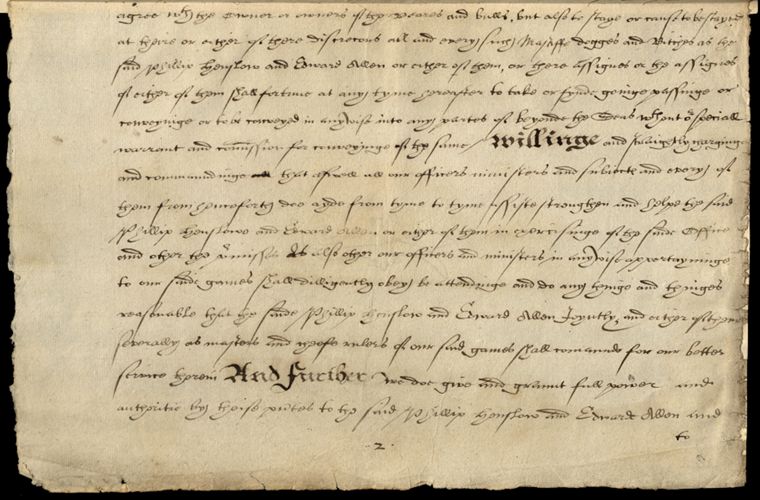 agree wth the Owner or owners of the Beares and bulls, but also to staye or cause to be stayed
at there or either of there discrecons all and every such Mastiffe dogges and Bitches as the
said Phillip Henslow and Edward Allen or either of them, or there assignes or the assignes
of either of them shall fortune at any tyme hereafter to take or fynde goinge passinge or
conveyinge or to be conveyed in any wise into any partes of beyonde the Seas wthout or speciall
warrant and comission for conveyinge of the same Willinge and straightly charginge
and commaundinge that aswell all our officers ministers and subiects and every of
them from henceforth doe ayde from tyme to tyme assiste strengthen and helpe the said
Phillip Henslowe and Edward Allen or either of them in exercisinge of the saide Office
and other the pmisses As also other our officers and ministers in any wise appertayninge
to our saide games shall dilligently obey be attendinge and do any thinge and thinges
reasonable that the saide Phillip Henslow and Edward Allen Joyntly, and either of them
severally as masters and cheefe rulers of our said games shall comaunde for our better
service herein And further we doe give and graunt full power and
authoritie by theise pntes to the said Phillip Henslow and Edward Allen and
to
2